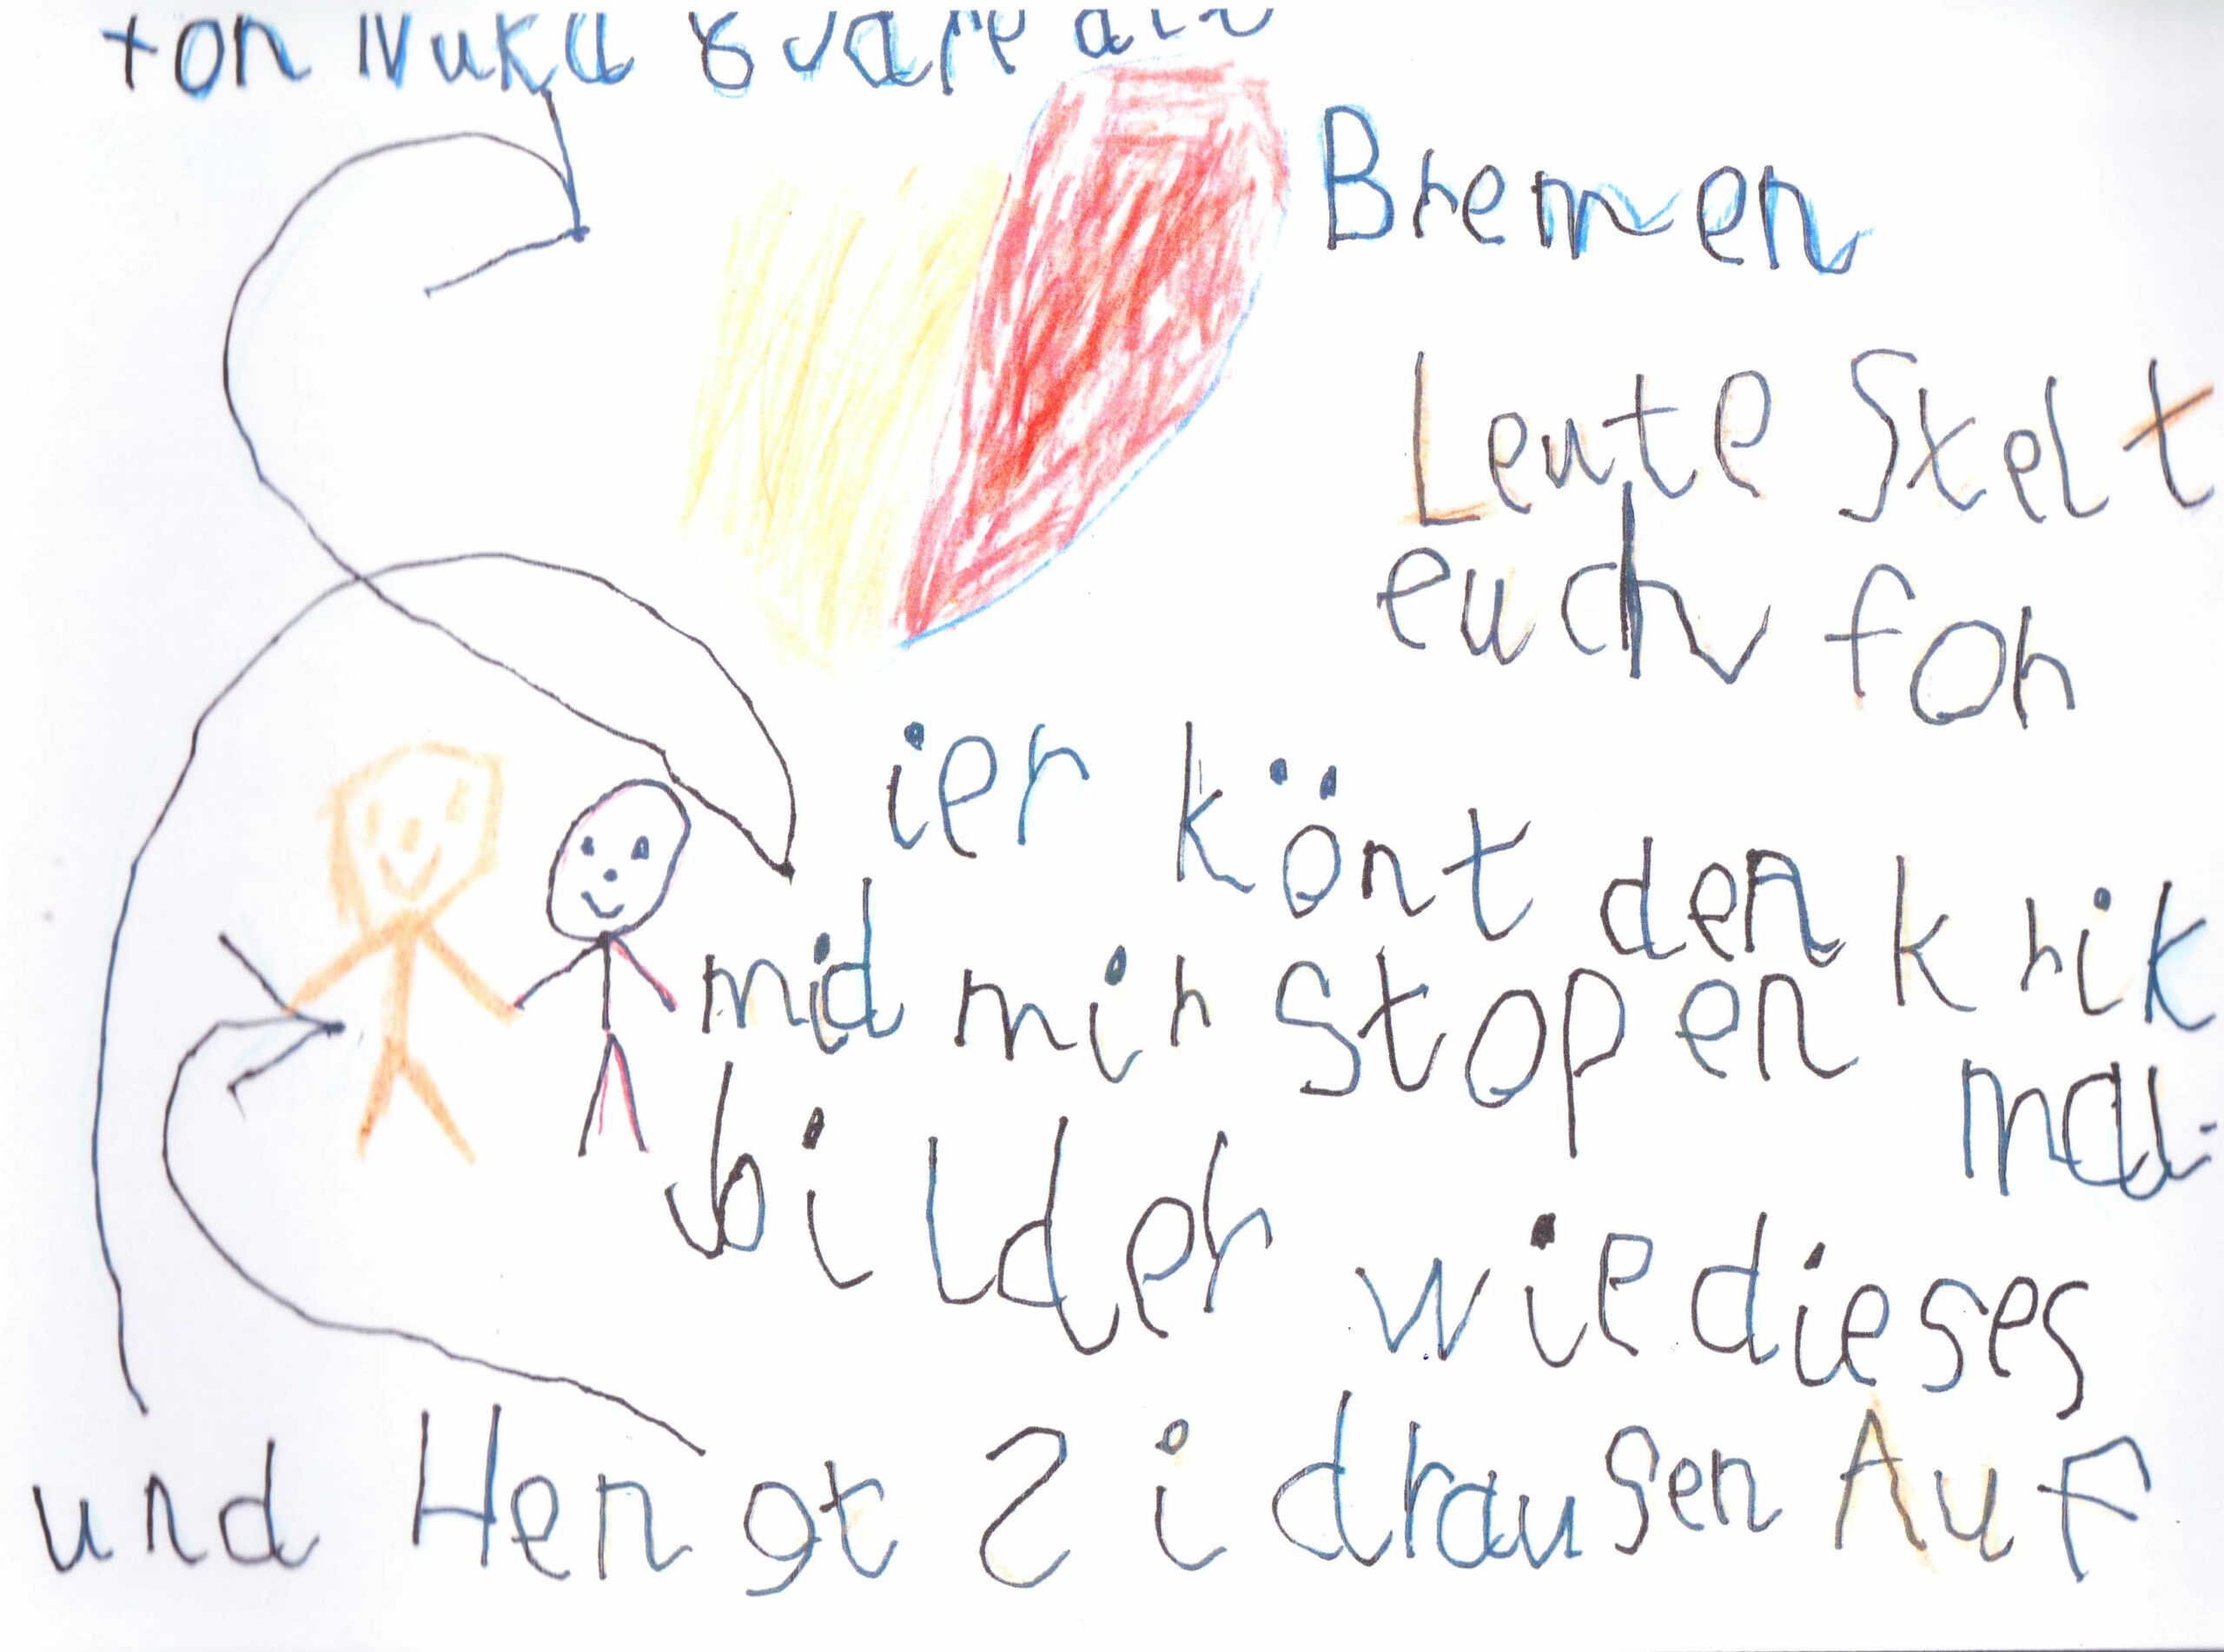 fon Nuka 8 Jare alt
Bremen
Leute Stelt
euch for
ier könt den krik
mid mir Stopen
mal
bilder wie dieses
und Hengt Si drausen Auf